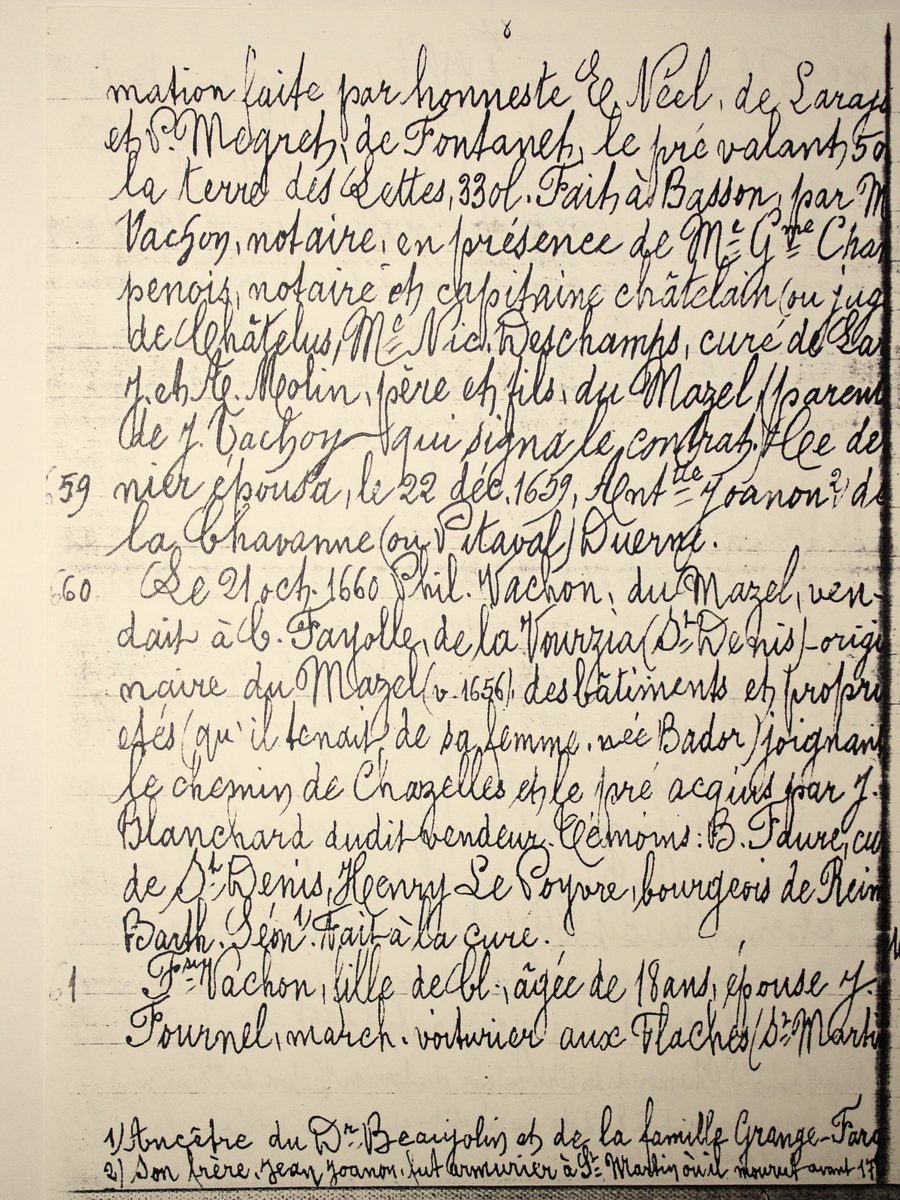 8
mation faite par honneste E. Néel, de Laraj
et P. Megret, de Fontanet, le pré valant 50
la terre des Lettes, 330l. Fait à Basson, par M
Vachon, notaire, en présence de Mᵉ Gᵐᵉ Char
penois, notaire et capitaine châtelain (ou jug
de Châtelus, Mᵉ Nic. Deschamps, curé de La
J. et A. Molin, père et fils, du Mazel (parent
de J. Vachon qui signa le contrat). Ce de
59 nier épousa, le 22 déc. 1659, Antᵗᵗᵉ Joanon ²) de
la Chavanne (ou Pitaval) Duerne.
60 Le 21 oct. 1660 Phil. Vachon, du Mazel, ven-
dait à C. Fayolle, de la Vourzia (Sᵗ Denis) - origi
naire du Mazel (v. 1656), des bâtiments et propri
etés (qu'il tenait de sa femme, née Bador) joignant
le chemin de Chazelles et le pré acquis par J.
Blanchard dudit vendeur. Témoins: B. Faure, cu
de Sᵗ Denis, Henry Le Poyvre, bourgeois de Reim
Barth. Séon ¹). Fait à la cure.
1 Fˢᵉ Vachon, fille de Cl., âgée de 18 ans, épouse J.
Fournel, march. voiturier aux Flaches (Sᵗ Marti
1) Ancêtre du Dʳ Beaujolin et de la famille Grange-Fara
2) Son frère, Jean Joanon, fut armurier à Sᵗ Martin où il mourut avant 17